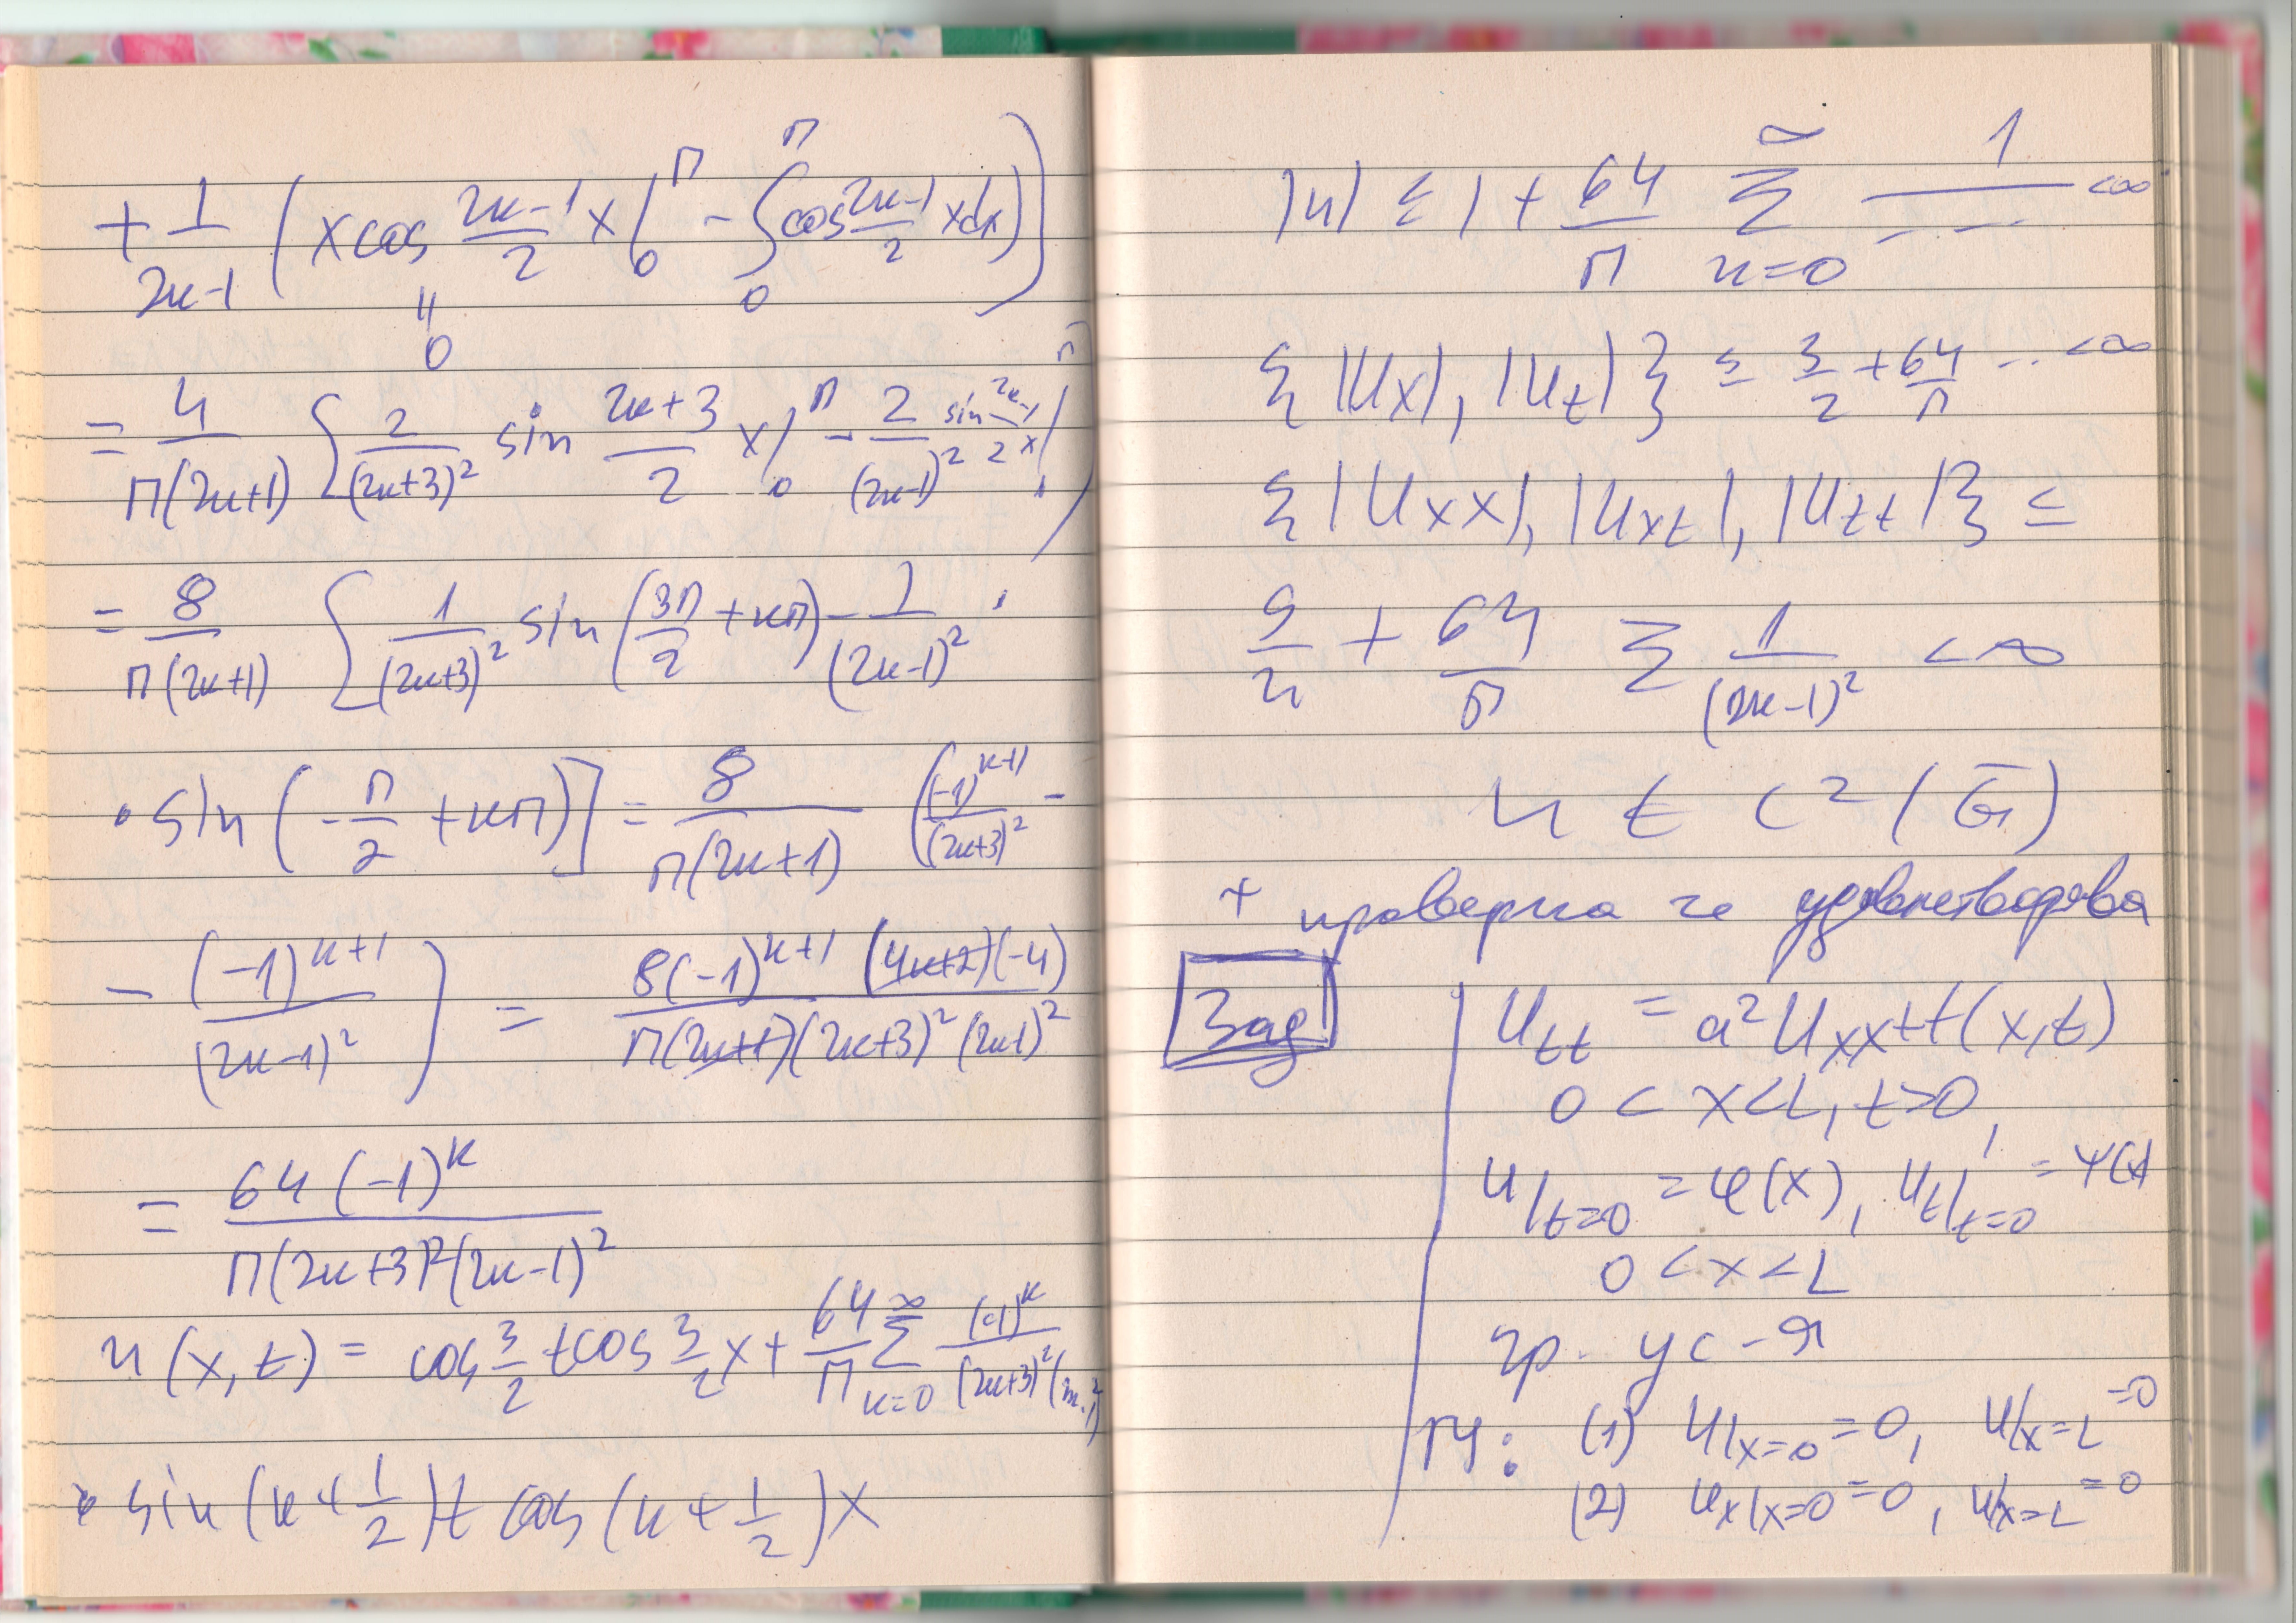 + 1/(2k-1) (x cos (2k-1)/2 x |₀^π - ∫₀^π cos (2k-1)/2 x dx)]
||
0
= 4/(π(2k+1)) [2/(2k+3)² sin (2k+3)/2 x |₀^π - 2/(2k-1)² sin (2k-1)/2 x |₀^π]
= 8/(π(2k+1)) [1/(2k+3)² sin (3π/2 + kπ) - 1/(2k-1)² ·
· sin (-π/2 + kπ)] = 8/(π(2k+1)) ((-1)^(k+1)/(2k+3)² -
- (-1)^(k+1)/(2k-1)²) = 8(-1)^(k+1) (4k+2)(-4)/(π(2k+1)(2k+3)²(2k-1)²)
= 64(-1)^k/(π(2k+3)²(2k-1)²)
u(x,t) = cos 3/2 t cos 3/2 x + 64/π Σ_(k=0)^∞ (-1)^k/((2k+3)²(2k-1)²)
· sin (k+1/2)t cos (k+1/2)x
|u| ≤ 1 + 64/π Σ_(k=0)^∞ 1/--- < ∞
{|u_x|, |u_t|} ≤ 3/2 + 64/π ... < ∞
{|u_xx|, |u_xt|, |u_tt|} ≤
9/4 + 64/π Σ 1/(2k-1)² < ∞
u ∈ C²(G̅)
+ проверка че удовлетворява
Зад
u_tt = a² u_xx + f(x,t)
0 < x < L, t > 0,
u|_(t=0) = φ(x), u_t|_(t=0) = ψ(x)
0 < x < L
гр. ус-я
ГУ: (1) u|_(x=0) = 0, u|_(x=L) = 0
(2) u_x|_(x=0) = 0, u|_(x=L) = 0